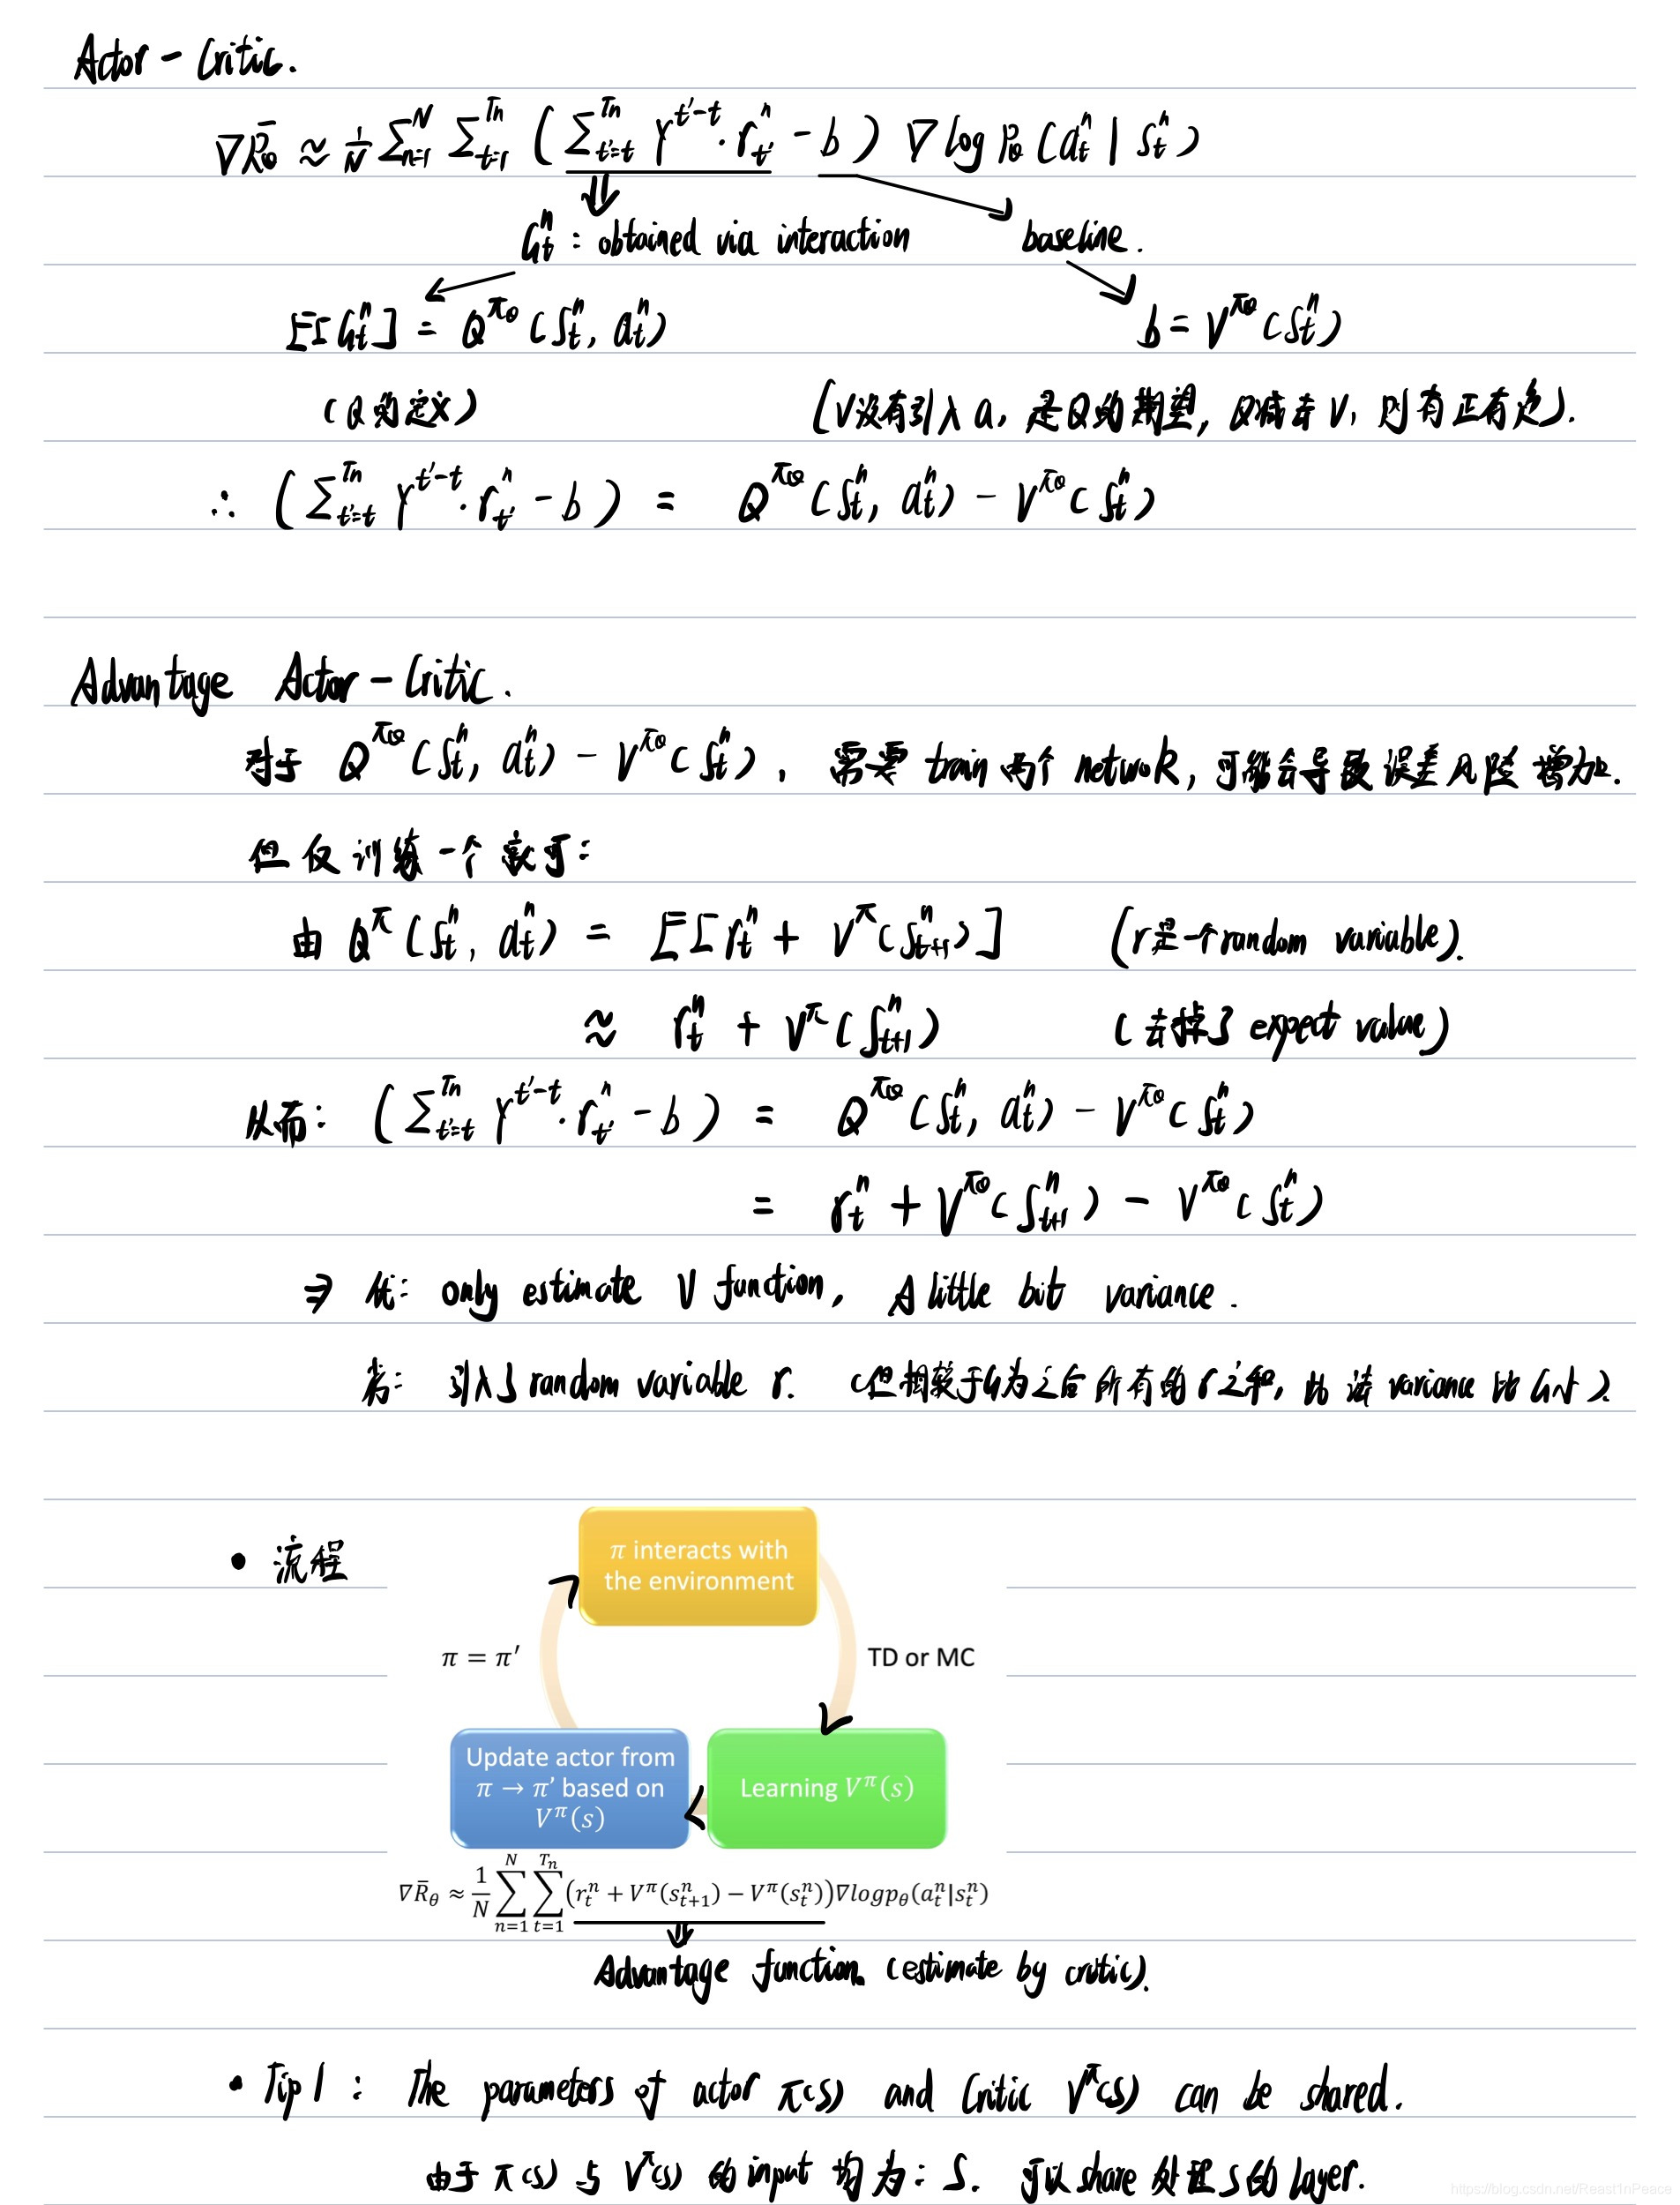 Actor - Critic.
∇R̄θ ≈ 1/N Σ_{n=1}^{N} Σ_{t=1}^{Tn} ( Σ_{t'=t}^{Tn} γ^{t'-t} · r_{t'}^n - b ) ∇ log Pθ (a_t^n | s_t^n)
G_t^n : obtained via interaction baseline.
E[G_t^n] = Q^{πθ} (s_t^n, a_t^n) b = V^{πθ} (s_t^n)
(Q的定义) (V没有引入a, 是Q的期望, Q减去V, 则有正有负).
∴ ( Σ_{t'=t}^{Tn} γ^{t'-t} · r_{t'}^n - b ) = Q^{πθ} (s_t^n, a_t^n) - V^{πθ} (s_t^n)
Advantage Actor - Critic.
对于 Q^{πθ} (s_t^n, a_t^n) - V^{πθ} (s_t^n), 需要 train 两个 netwoK, 可能会导致误差风险增加.
但仅训练一个就可:
由 Q^π (s_t^n, a_t^n) = E[r_t^n + V^π (s_{t+1}^n)] (r是一个random variable).
≈ r_t^n + V^π (s_{t+1}^n) (去掉了 expect value)
从而: ( Σ_{t'=t}^{Tn} γ^{t'-t} · r_{t'}^n - b ) = Q^{πθ} (s_t^n, a_t^n) - V^{πθ} (s_t^n)
= r_t^n + V^{πθ} (s_{t+1}^n) - V^{πθ} (s_t^n)
⇒ 优: only estimate V function, A little bit variance.
劣: 引入了 random variable r. (但相较于G为之后所有的r之和, 故该 variance 比G小).
• 流程
π interacts with
the environment
π = π′ TD or MC
Update actor from
π → π′ based on
V^π(s)
Learning V^π(s)
∇R̄θ ≈ 1/N Σ_{n=1}^{N} Σ_{t=1}^{Tn} (r_t^n + V^π(s_{t+1}^n) − V^π(s_t^n))∇logpθ(a_t^n|s_t^n)
Advantage function. (estimate by critic).
• Tip 1 : The parameters of actor π(s) and Critic V^π(s) can be shared.
由于 π(s) 与 V^π(s) 的 input 均为: S. 可以 share 处理 S 的 layer.
https://blog.csdn.net/Reast1nPeace